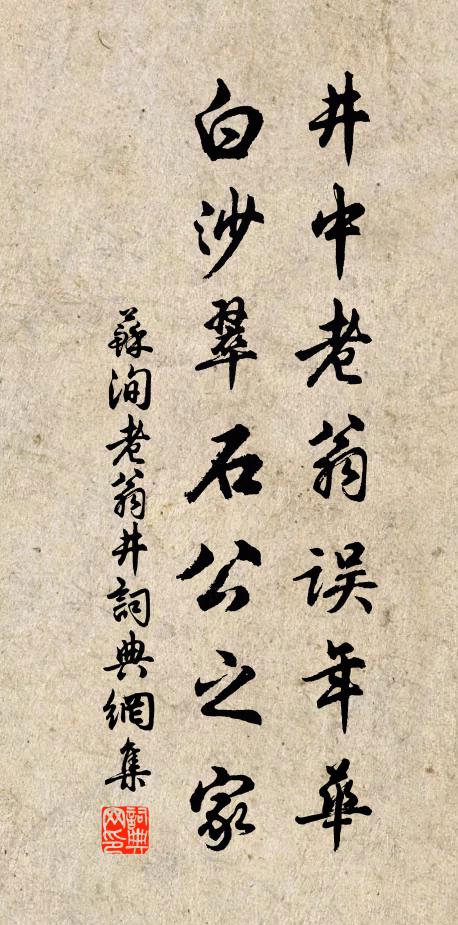 井中老翁误年華
白沙翠石公之家
蘇洵老翁井詞典網集
詞典网印